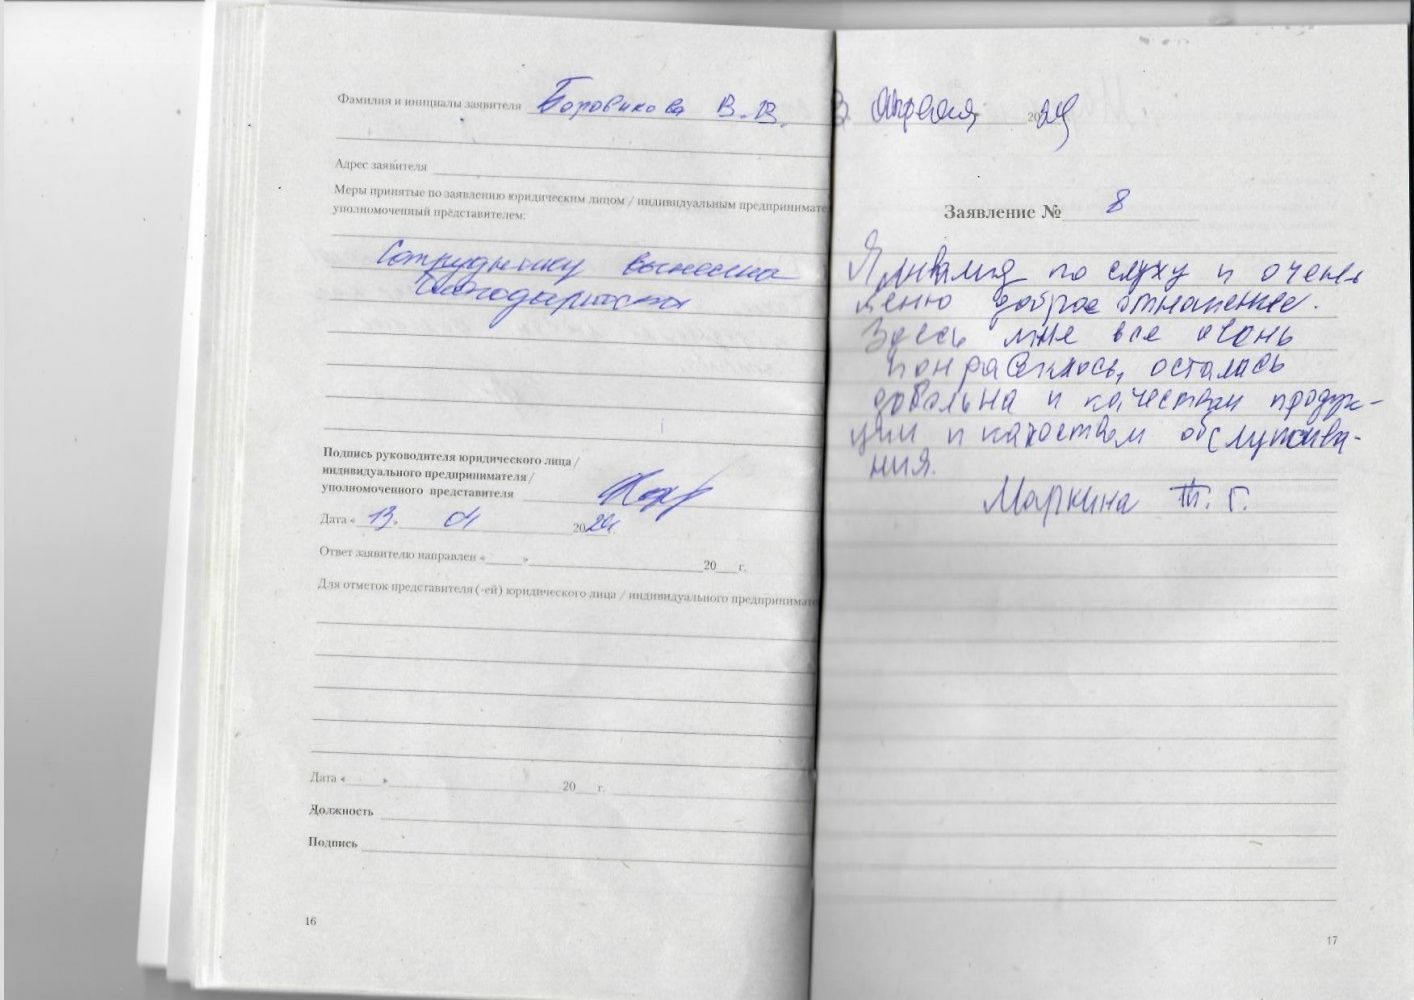 Фамилия и инициалы заявителя Боровикова В.В.
Адрес заявителя
Меры принятые по заявлению юридическим лицом / индивидуальным предпринимате
уполномоченный представителем:
Сотруднику вынесена
благодарность
Подпись руководителя юридического лица /
индивидуального предпринимателя /
уполномоченного представителя
Дата « 13. 04 2024
Ответ заявителю направлен « » 20 г.
Для отметок представителя (-ей) юридического лица / индивидуального предпринимате
Дата « » 20 г.
Должность
Подпись
16
3 апреля 2024
Заявление № 8
Я инвалид по слуху и очень
ценю доброе отношение.
Здесь мне все очень
понравилось, осталась
довольна и качеством продук-
ции и качеством обслужива-
ния.
Маркина Т. Г.
17